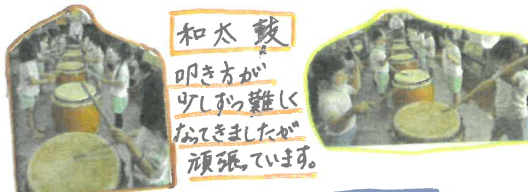 和太鼓
叩き方が
少しずつ難しく
なってきましたが
頑張っています。